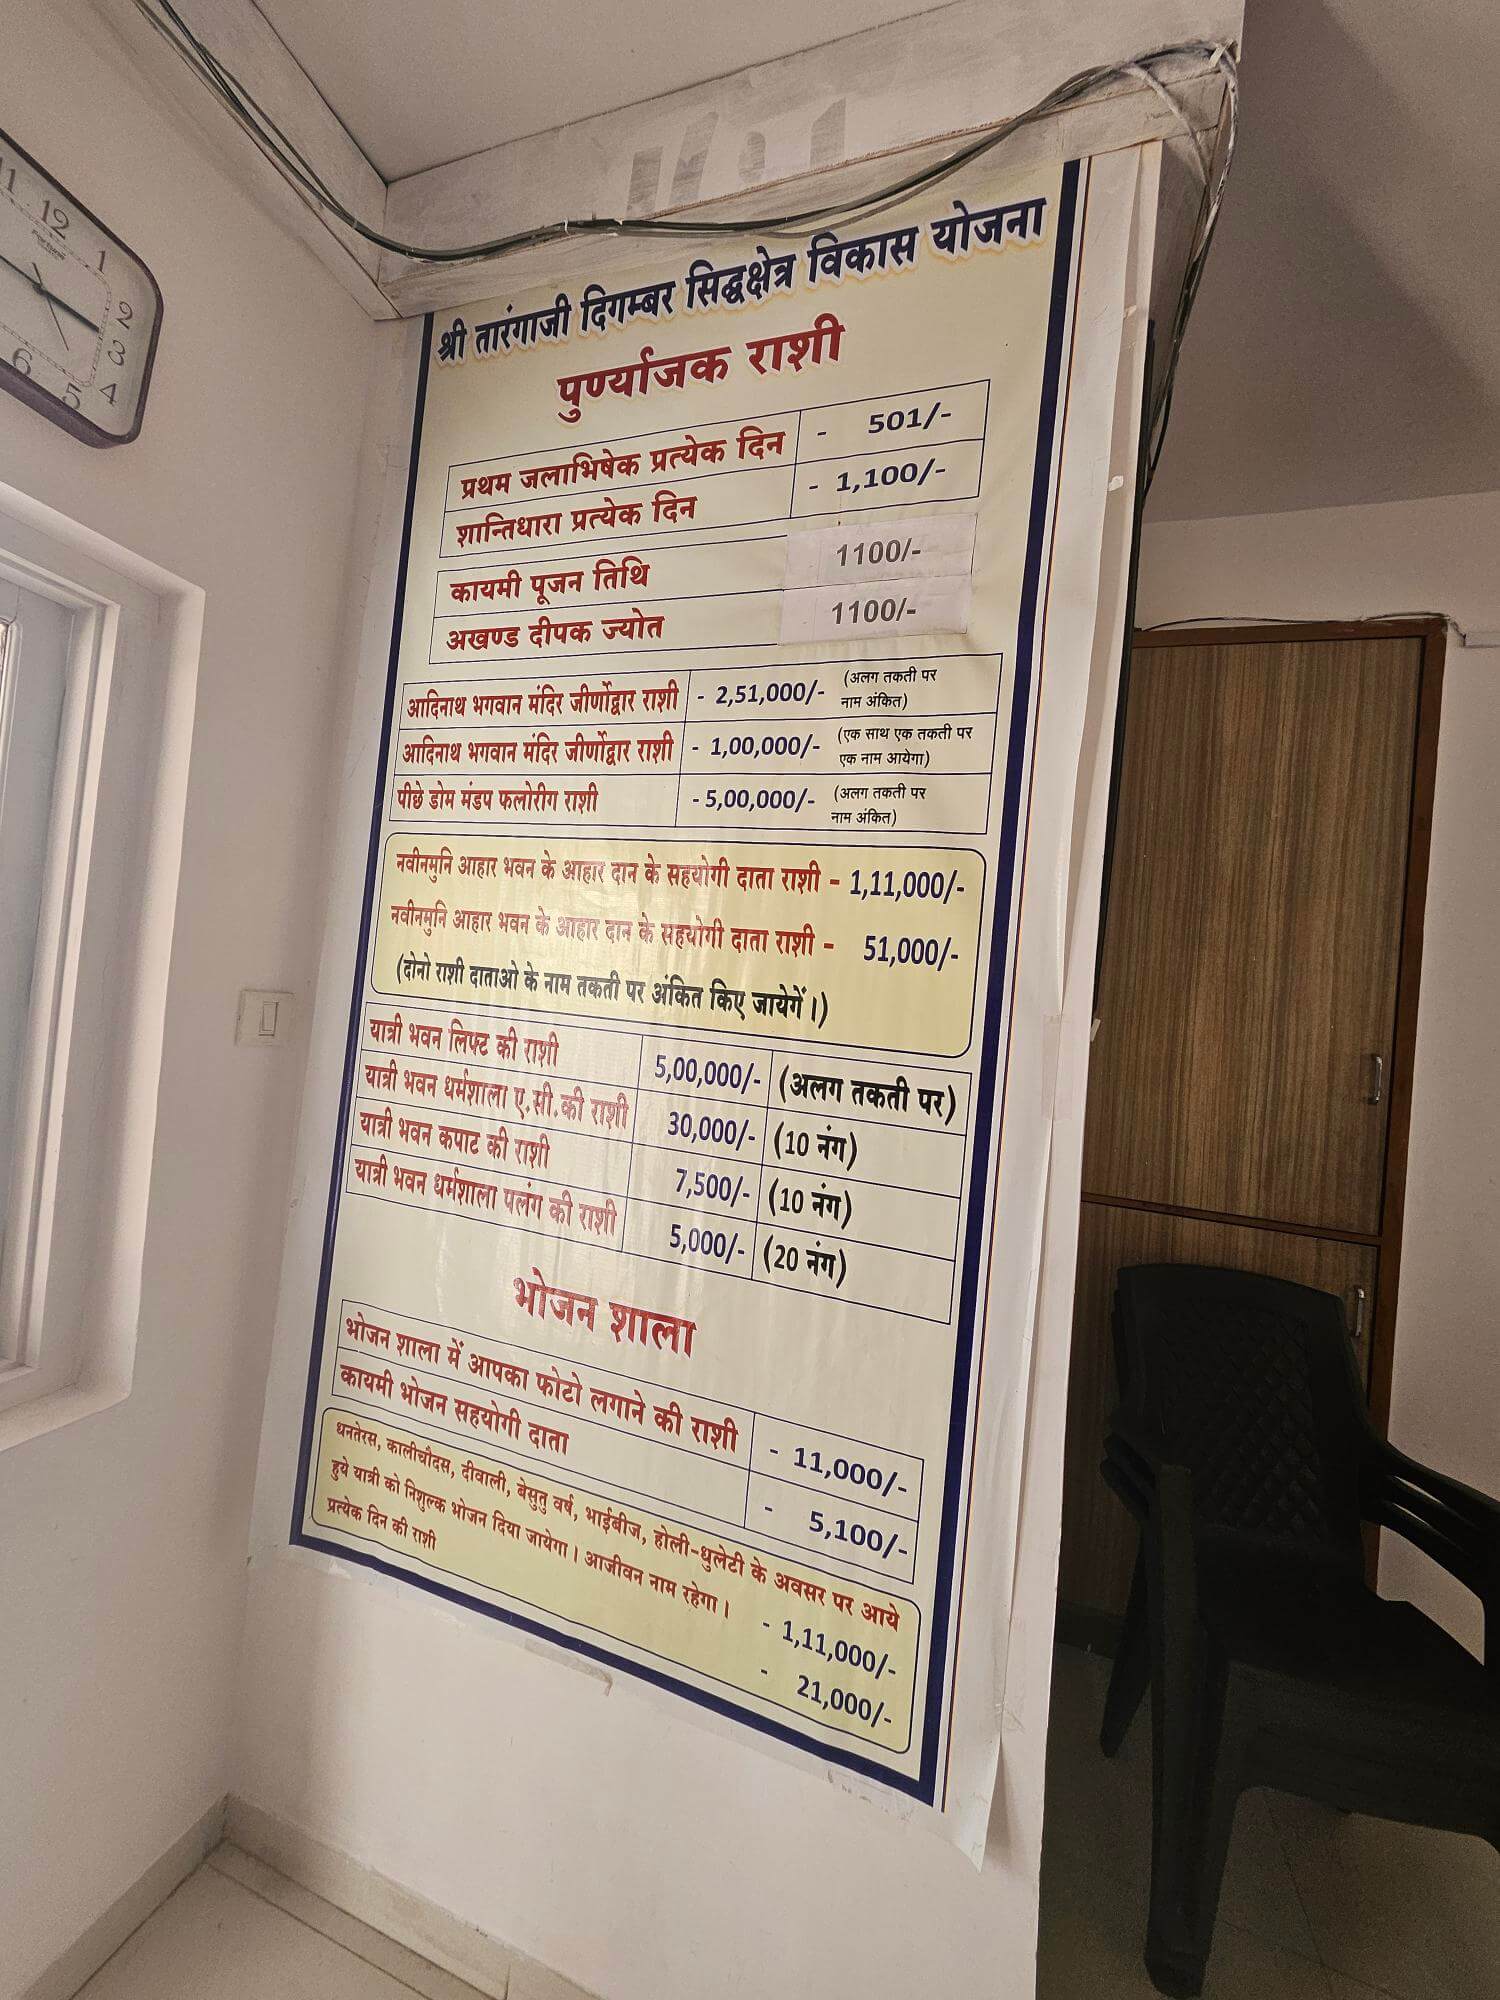 श्री तारंगाजी दिगम्बर सिद्धक्षेत्र विकास योजना
पुर्ण्याजक राशी
प्रथम जलाभिषेक प्रत्येक दिन - 501/-
शान्तिधारा प्रत्येक दिन - 1,100/-
कायमी पूजन तिथि 1100/-
अखण्ड दीपक ज्योत 1100/-
आदिनाथ भगवान मंदिर जीर्णोद्वार राशी - 2,51,000/- (अलग तकती पर
नाम अंकित)
आदिनाथ भगवान मंदिर जीर्णोद्वार राशी - 1,00,000/- (एक साथ एक तकती पर
एक नाम आयेगा)
पीछे डोम मंडप फलोरीग राशी - 5,00,000/- (अलग तकती पर
नाम अंकित)
नवीनमुनि आहार भवन के आहार दान के सहयोगी दाता राशी - 1,11,000/-
नवीनमुनि आहार भवन के आहार दान के सहयोगी दाता राशी - 51,000/-
(दोनो राशी दाताओ के नाम तकती पर अंकित किए जायेगें।)
यात्री भवन लिफ्ट की राशी 5,00,000/- (अलग तकती पर)
यात्री भवन धर्मशाला ए.सी.की राशी 30,000/- (10 नंग)
यात्री भवन कपाट की राशी 7,500/- (10 नंग)
यात्री भवन धर्मशाला पलंग की राशी 5,000/- (20 नंग)
भोजन शाला
भोजन शाला में आपका फोटो लगाने की राशी - 11,000/-
कायमी भोजन सहयोगी दाता - 5,100/-
धनतेरस, कालीचौदस, दीवाली, बेसुतु वर्ष, भाईबीज, होली-धुलेटी के अवसर पर आये
हुये यात्री को निशुल्क भोजन दिया जायेगा। आजीवन नाम रहेगा। - 1,11,000/-
प्रत्येक दिन की राशी - 21,000/-
11
12
1
2
3
4
5
6